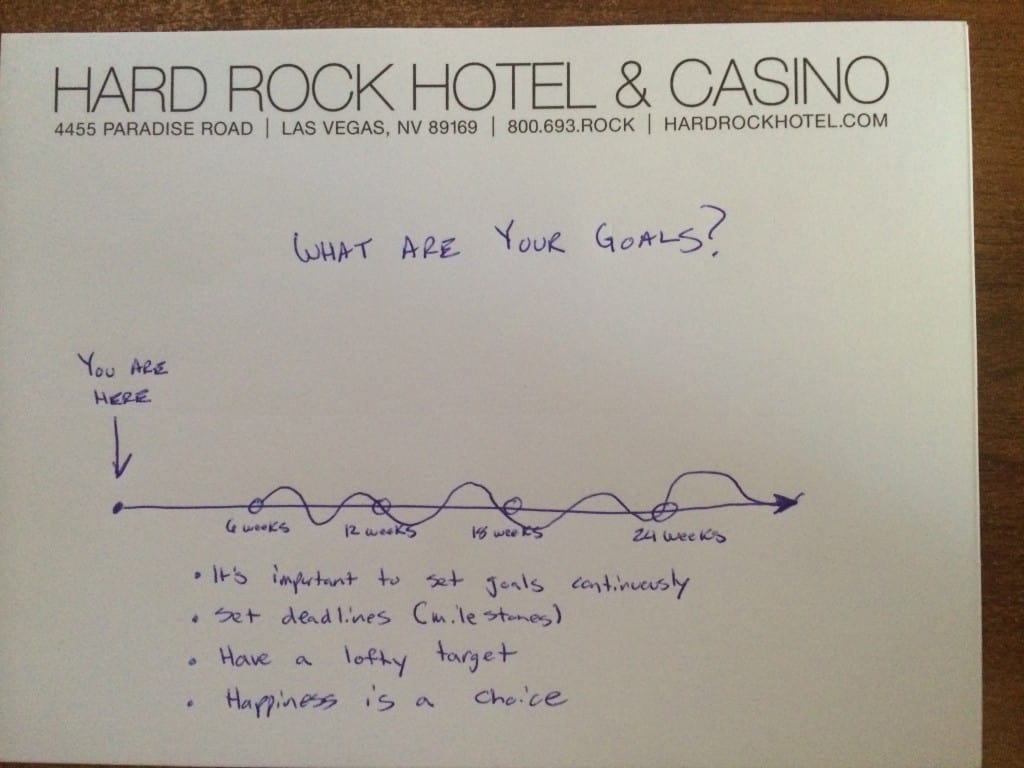 HARD ROCK HOTEL & CASINO
4455 PARADISE ROAD | LAS VEGAS, NV 89169 | 800.693.ROCK | HARDROCKHOTEL.COM
WHAT ARE YOUR GOALS?
YOU ARE
HERE
6 weeks 12 weeks 18 weeks 24 weeks
• It's important to set goals continuously
• Set deadlines (milestones)
• Have a lofty target
• Happiness is a choice